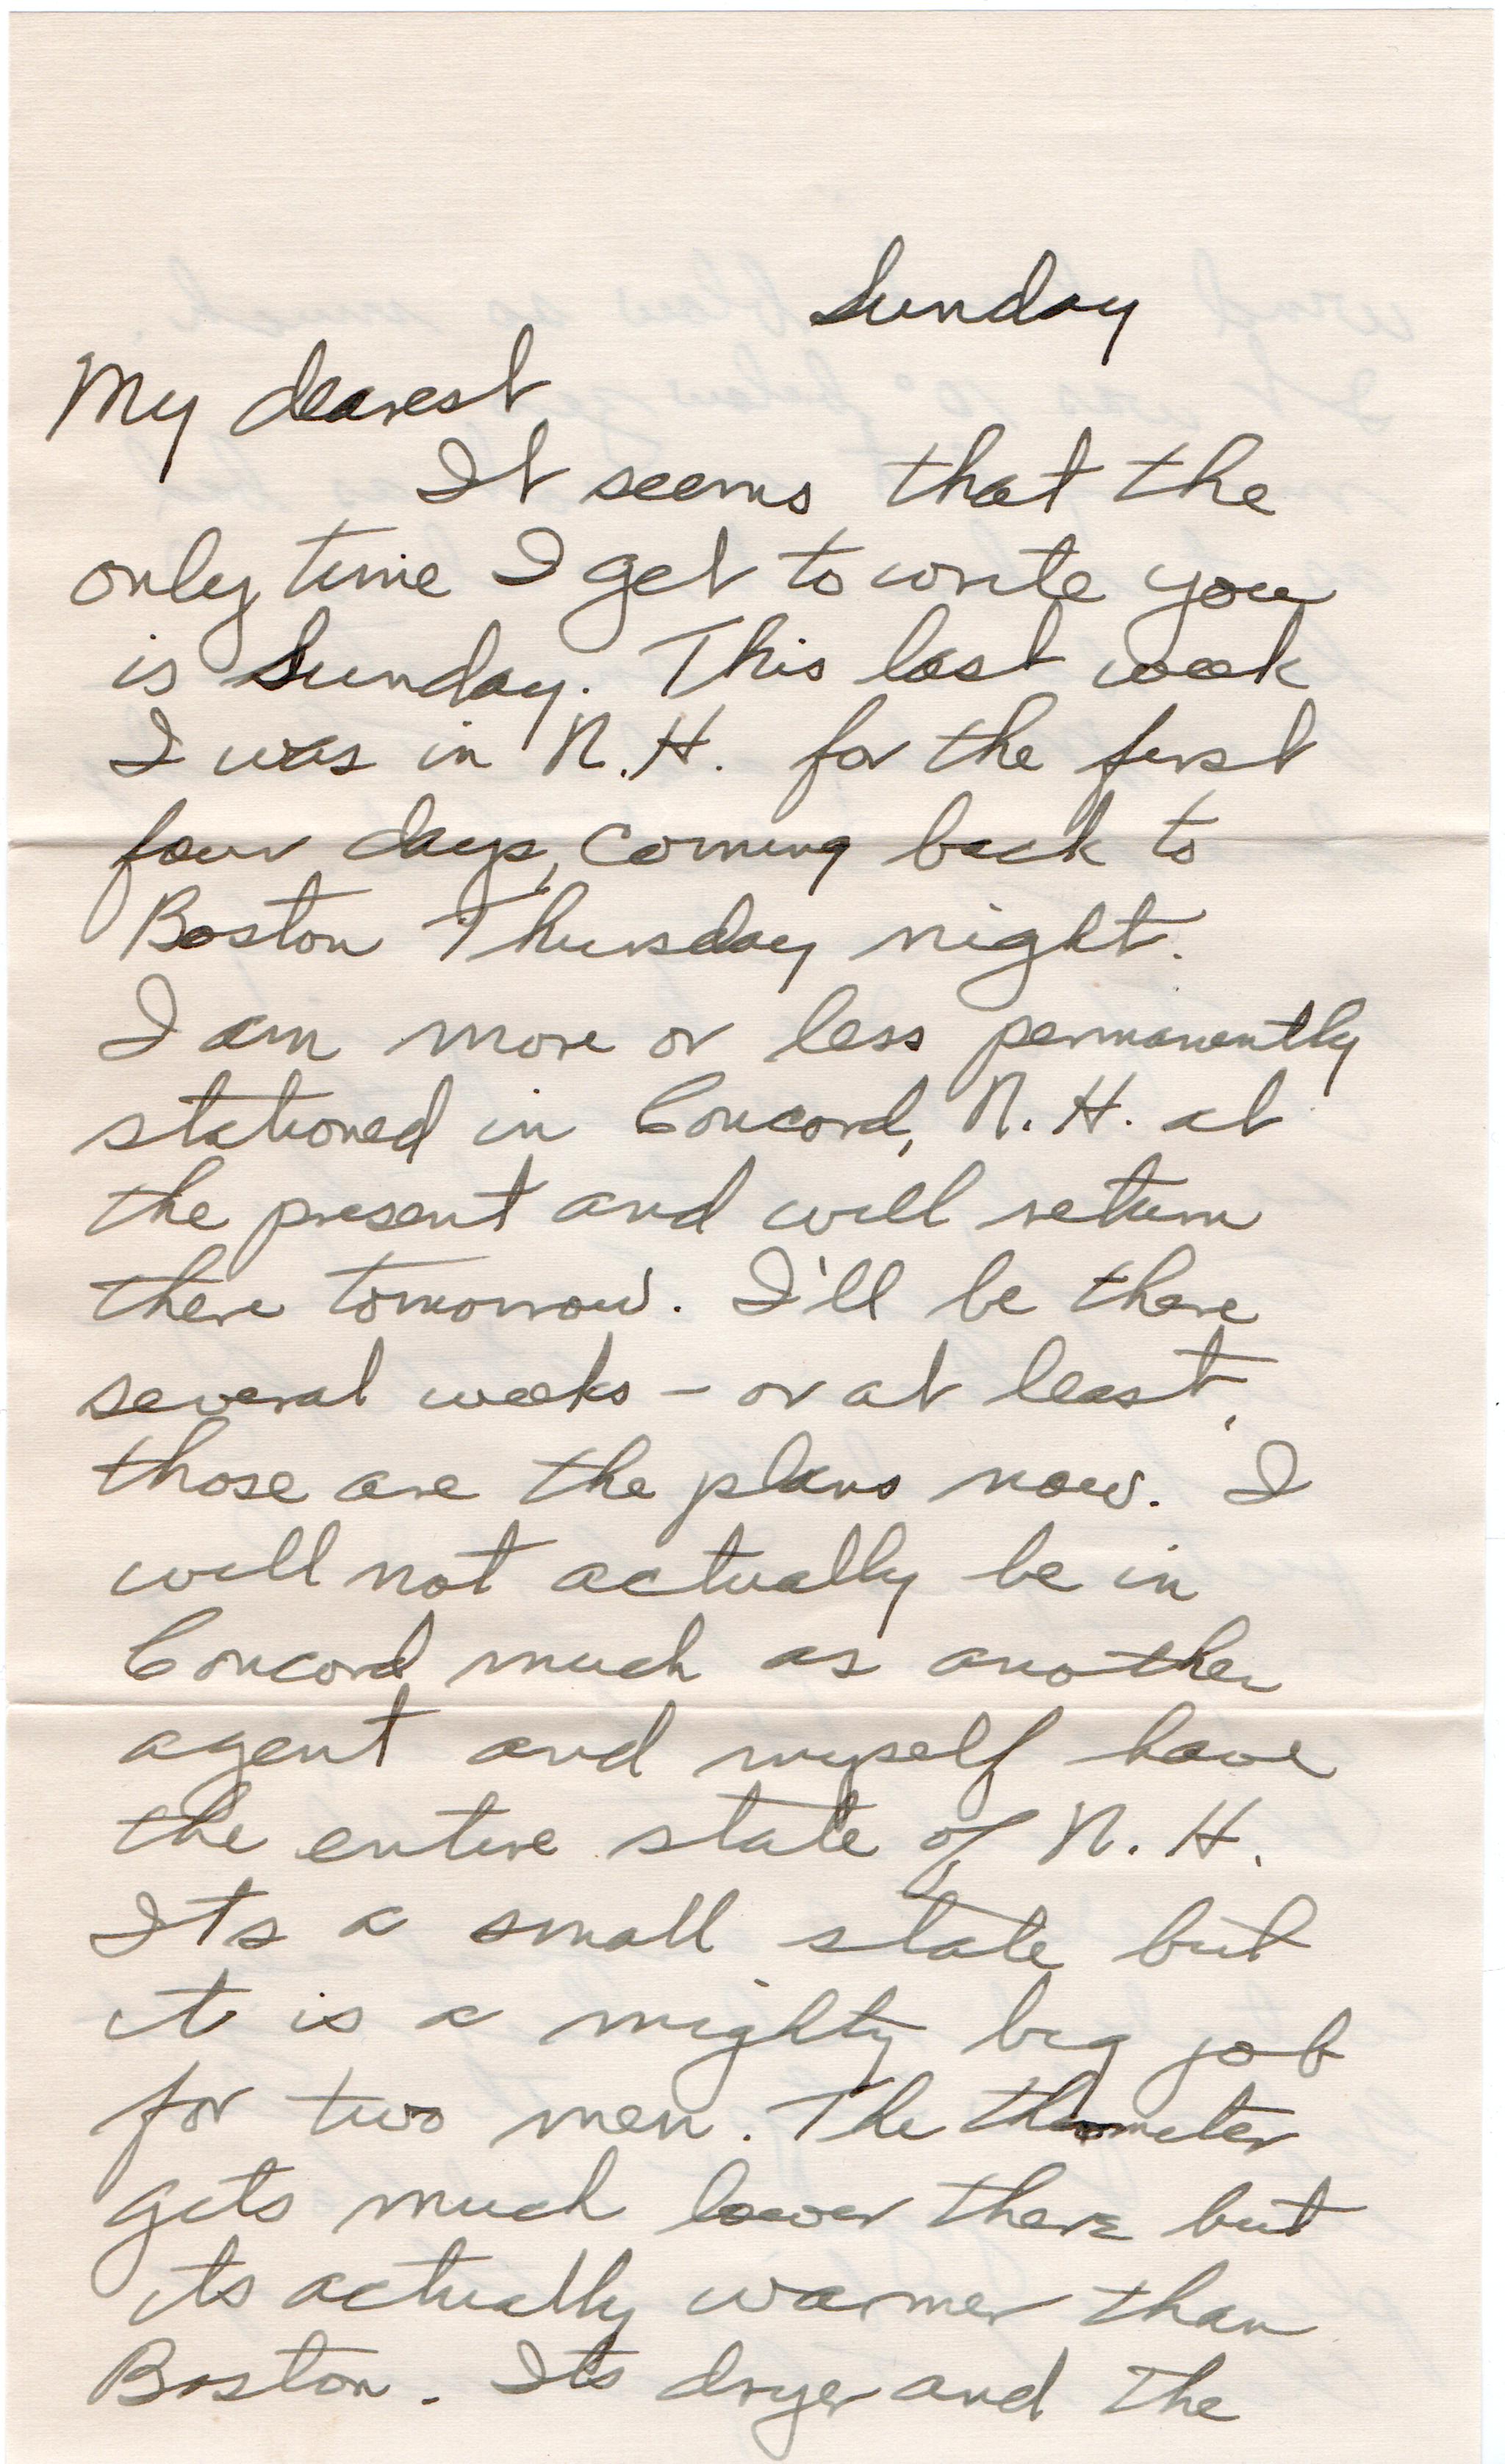 Sunday
My dearest
It seems that the
only time I get to write you
is Sunday. This last week
I was in N.H. for the first
four days, coming back to
Boston Thursday night.
I am more or less permanently
stationed in Concord, N.H. at
the present and will return
there tomorrow. I'll be there
several weeks – or at least,
those are the plans now. I
will not actually be in
Concord much as another
agent and myself have
the entire state of N.H.
Its a small state but
it is a mighty big job
for two men. The
gets much lower there but
its actually warmer than
Boston. Its dryer and the